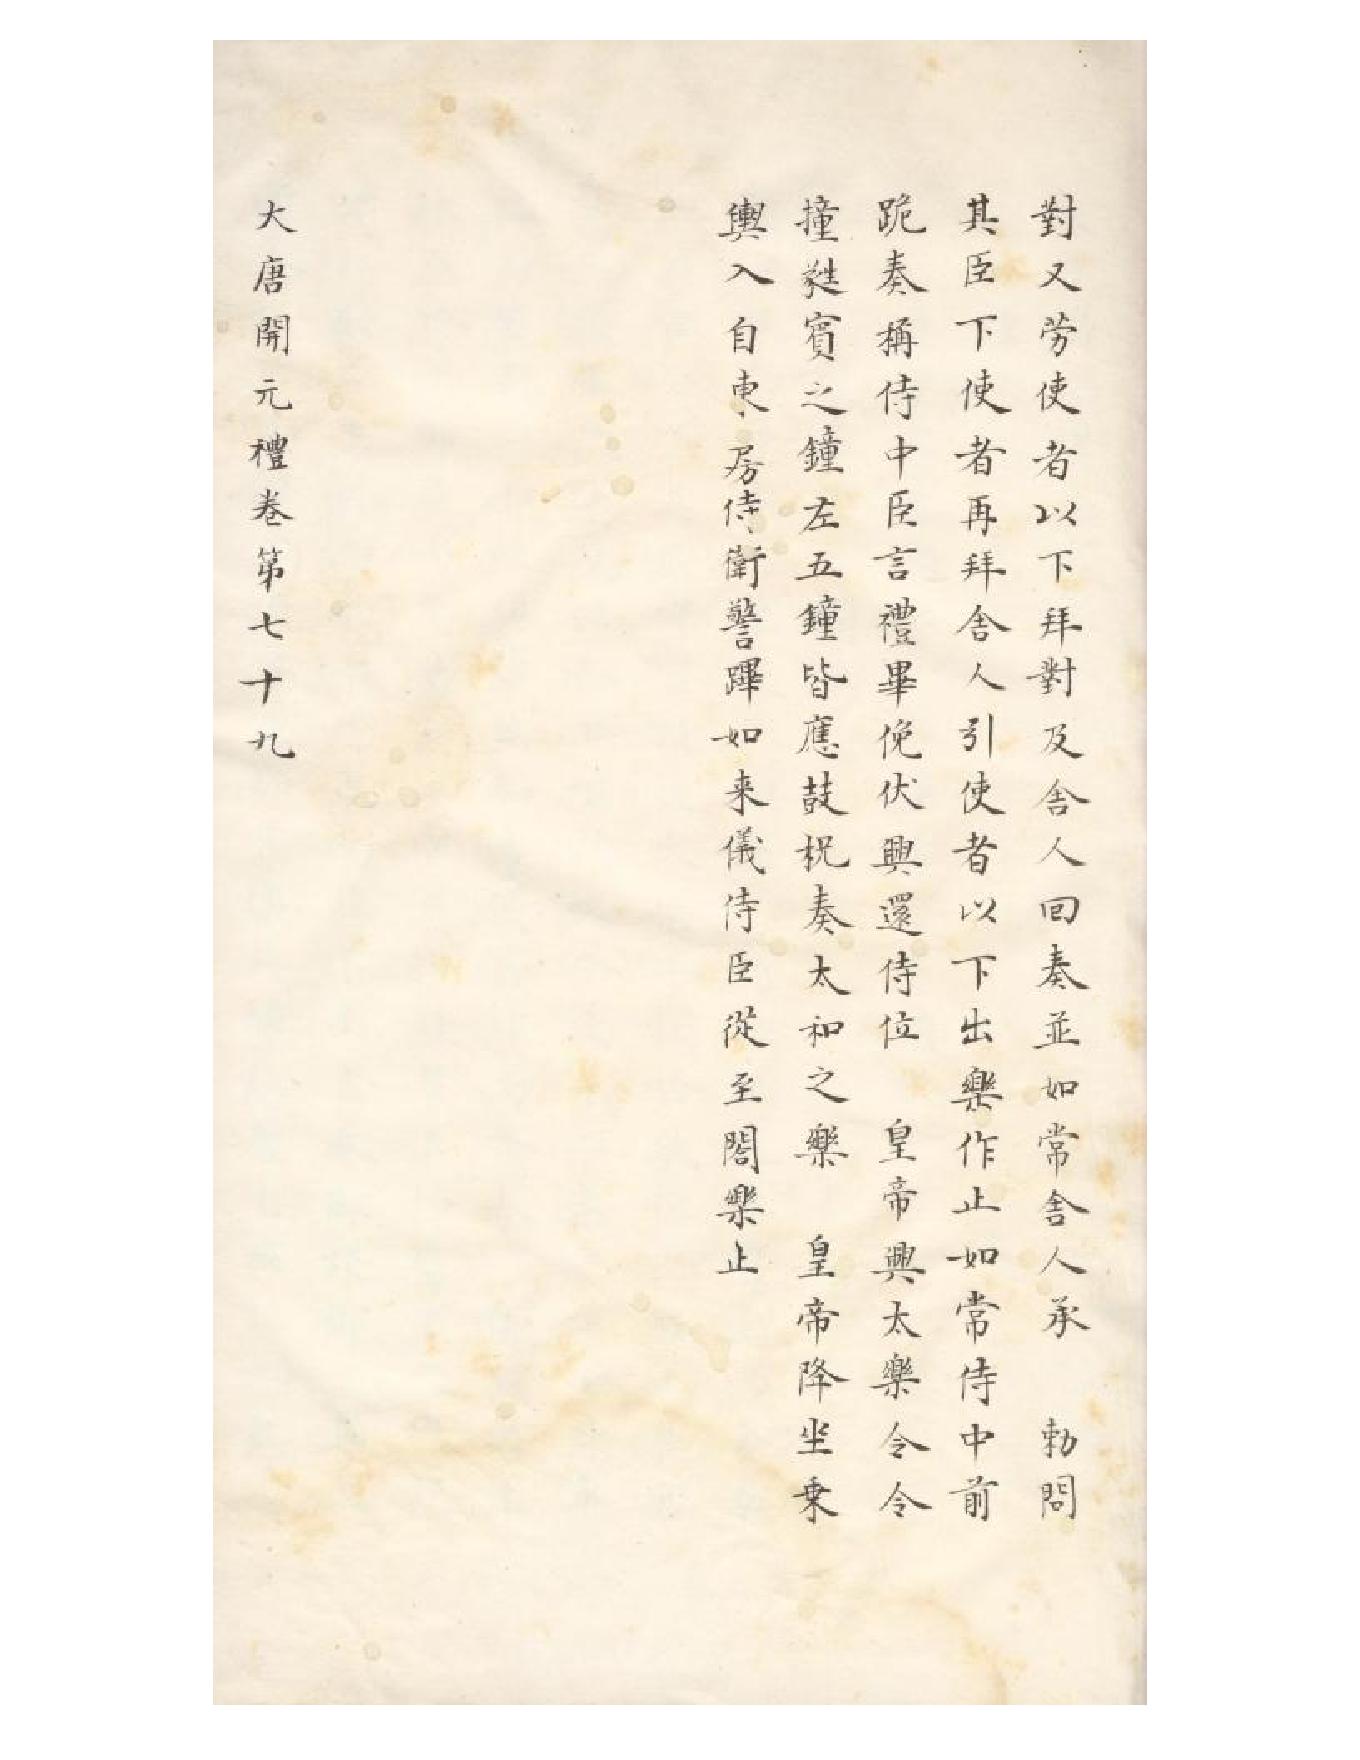 對又勞使者以下拜對及舍人回奏並如常舍人承　勑問
其臣下使者再拜舍人引使者以下出樂作止如常侍中前
跪奏稱侍中臣言禮畢俛伏興還侍位　皇帝興太樂令令
撞蕤賓之鐘左五鐘皆應鼓柷奏太和之樂　皇帝降坐乗
輿入自東房侍衛警蹕如来儀侍臣從至閤樂止
大唐開元禮卷第七十九